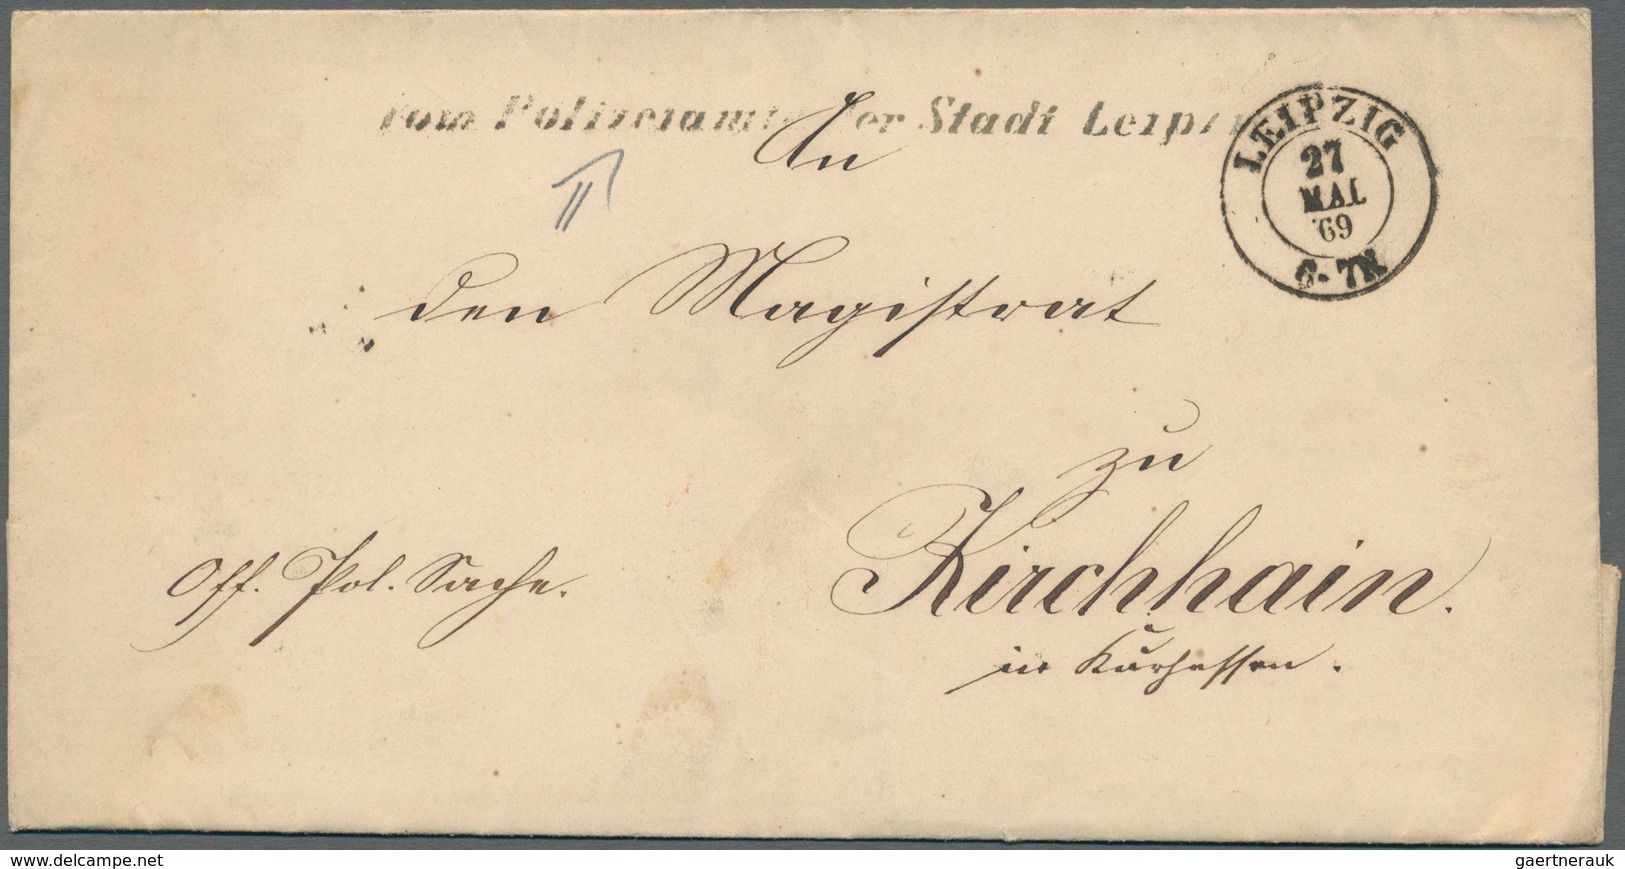 Vom Polizeiamte der Stadt Leipzig
LEIPZIG
27
MAI
69
6-7N
An
den Magistrat
zu
Kirchhain.
in Kurhessen.
Off. Pol. Sache.
delcampe.net
gaertnerauk